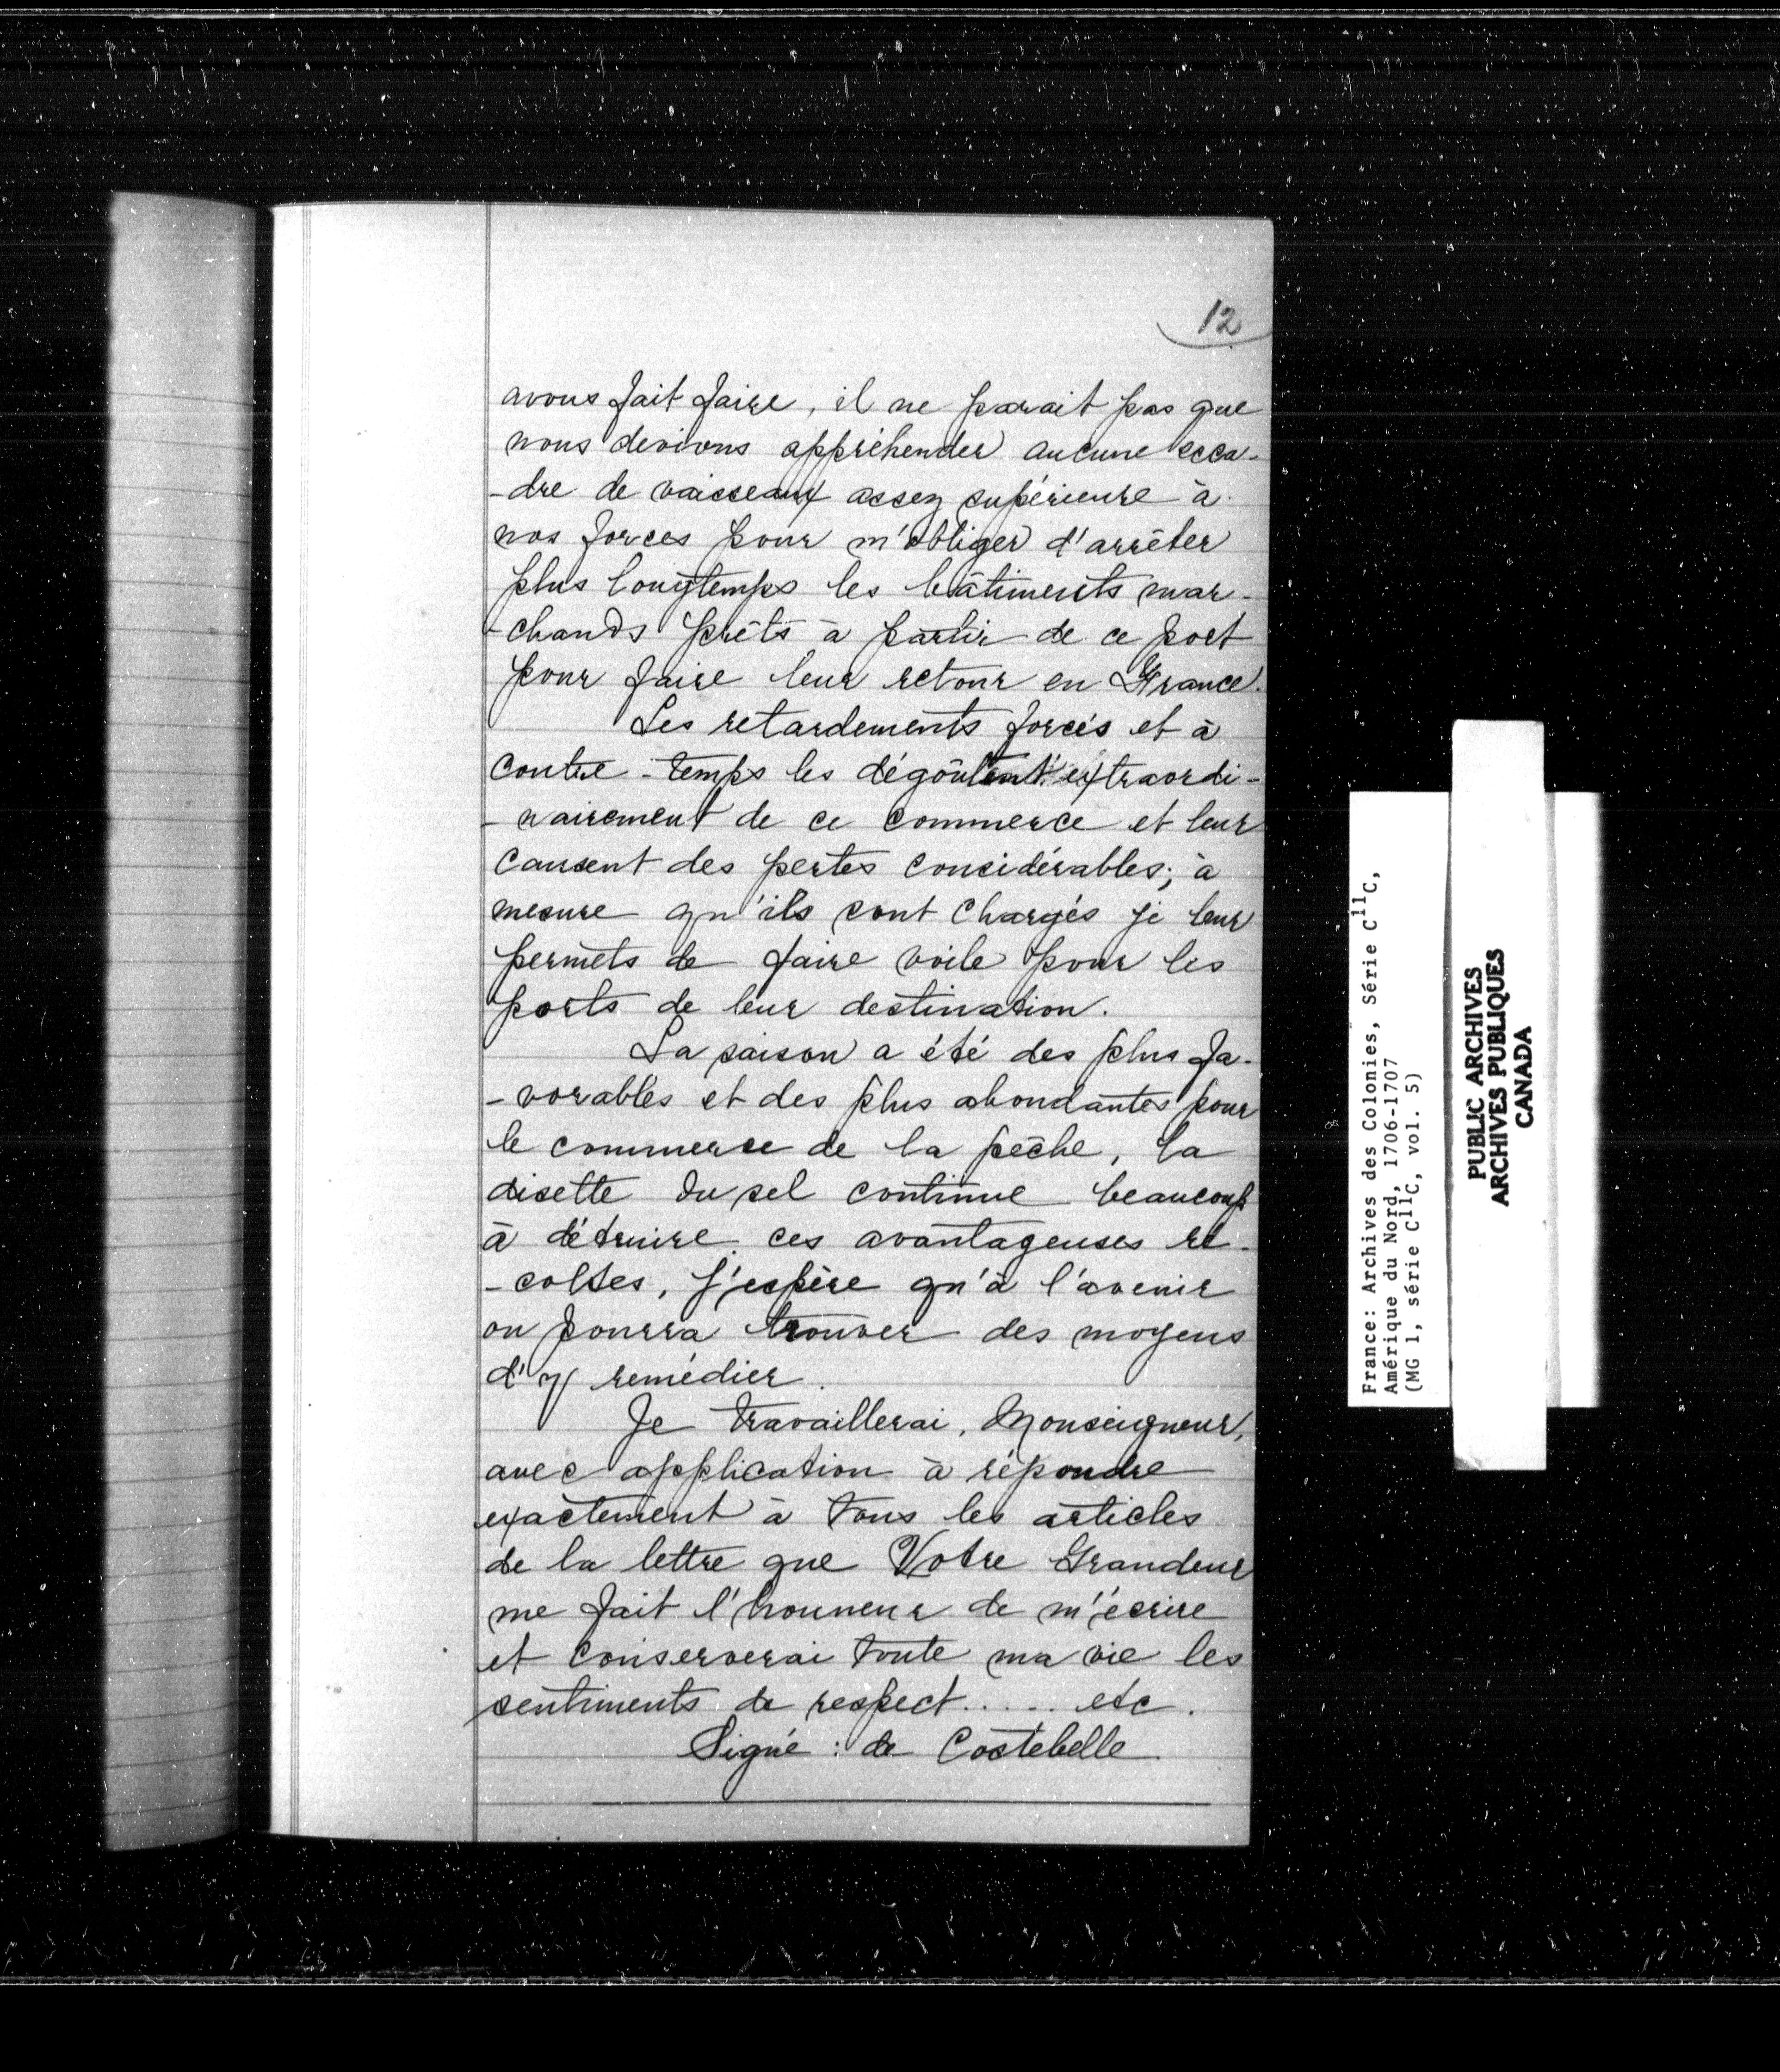 12
avons fait faire, il ne parait pas que
nous devions appréhender aucune esca-
-dre de vaisseaux assez supérieure à
nos forces pour m'obliger d'arrêter
plus longtemps les bâtiments mar-
-chands prêts à partir de ce port
pour faire leur retour en France.
Les retardements forcés et à
contre-temps les dégoûtent extraordi-
-nairement de ce commerce et leur
causent des pertes considérables; à
mesure qu'ils sont chargés je leur
permets de faire voile pour les
ports de leur destination.
La saison a été des plus fa-
-vorables et des plus abondantes pour
le commerce de la pêche, la
disette du sel continue beaucoup
à détruire ces avantageuses ré-
-coltes, j'espère qu'à l'avenir
on pourra trouver des moyens
d'y remédier.
Je travaillerai, Monseigneur,
avec application à répondre
exactement à tous les articles
de la lettre que Votre Grandeur
me fait l'honneur de m'écrire
et conserverai toute ma vie les
sentiments de respect..... etc.
Signé : de Costebelle
France: Archives des Colonies, Série C11C,
Amérique du Nord, 1706-1707
(MG 1, série C11C, vol. 5)
PUBLIC ARCHIVES
ARCHIVES PUBLIQUES
CANADA